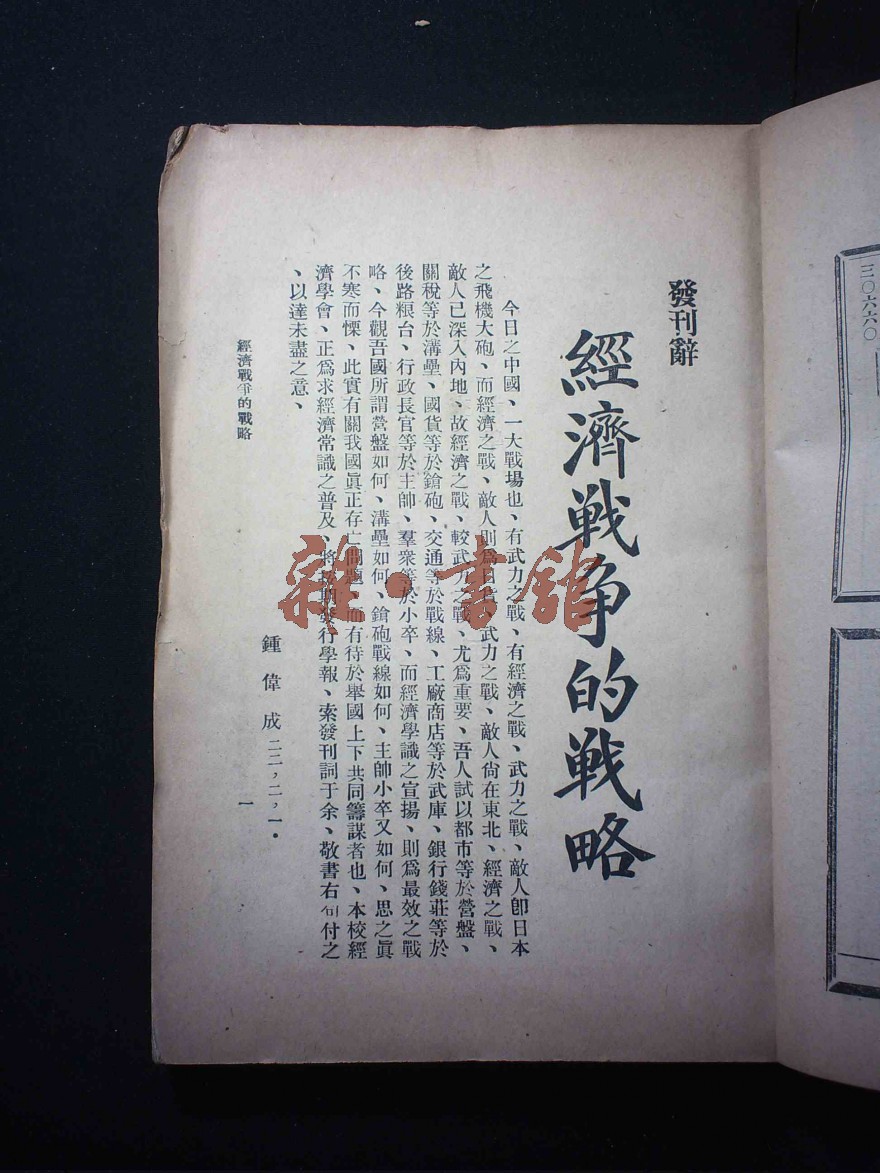 三〇六六〇
發刊辭
經濟戰争的戰略
今日之中國、一大戰場也、有武力之戰、有經濟之戰、武力之戰、敵人卽日本
之飛機大砲、而經濟之戰、敵人則爲日貨、武力之戰、敵人尙在東北、經濟之戰、
敵人已深入內地、故經濟之戰、較武力之戰、尤爲重要、吾人試以都市等於營盤、
關稅等於溝壘、國貨等於鎗砲、交通等於戰線、工廠商店等於武庫、銀行錢莊等於
後路粮台、行政長官等於主帥、羣衆等於小卒、而經濟學識之宣揚、則爲最效之戰
略、今觀吾國所謂營盤如何、溝壘如何、鎗砲戰線如何、主帥小卒又如何、思之眞
不寒而慄、此實有關我國眞正存亡問題、而有待於舉國上下共同籌謀者也、本校經
濟學會、正爲求經濟常識之普及、將按期發行學報、索發刊詞于余、敬書右旬付之
、以達未盡之意、
鍾偉成 二二，二，一．
經濟戰爭的戰略
一
雜·書舘